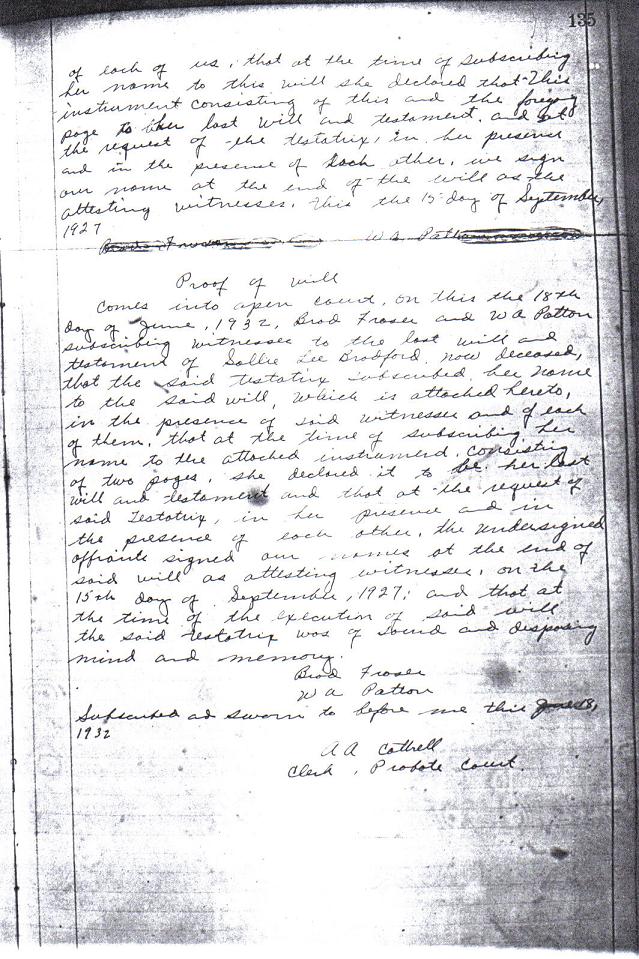 135
of each of us, that at the time of subscribing
her name to this will she declared that This
instrument consisting of this and the foregoing
page to be her last will and testament. and at
the request of the testatrix, in her presence
and in the presence of each other, we sign
our name at the end of the will as the
attesting witnesses. This the 15 day of September,
1927
W a Patton
Proof of will
Comes into open court, on this the 18th
day of June, 1932, Brad Fraser and W a Patton
subscribing witnesses to the last will and
testament of Sallie Lee Bradford, now deceased,
that the said testatrix subscribed her name
to the said will, which is attached hereto,
in the presence of said witnesses and of each
of them, that at the time of subscribing her
name to the attached instrument, consisting
of two pages, she declared it to be her last
will and testament and that at the request of
said Testatrix, in her presence and in
the presence of each other, the undersigned
affiants signed our names at the end of
said will as attesting witnesses, on the
15th day of September, 1927; and that at
the time of the execution of said will
the said testatrix was of sound and disposing
mind and memory.
Brad Fraser
W a Patton
Subscribed ad sworn to before me this June 18,
1932
A A Cothrell
Clerk, Probate Court.